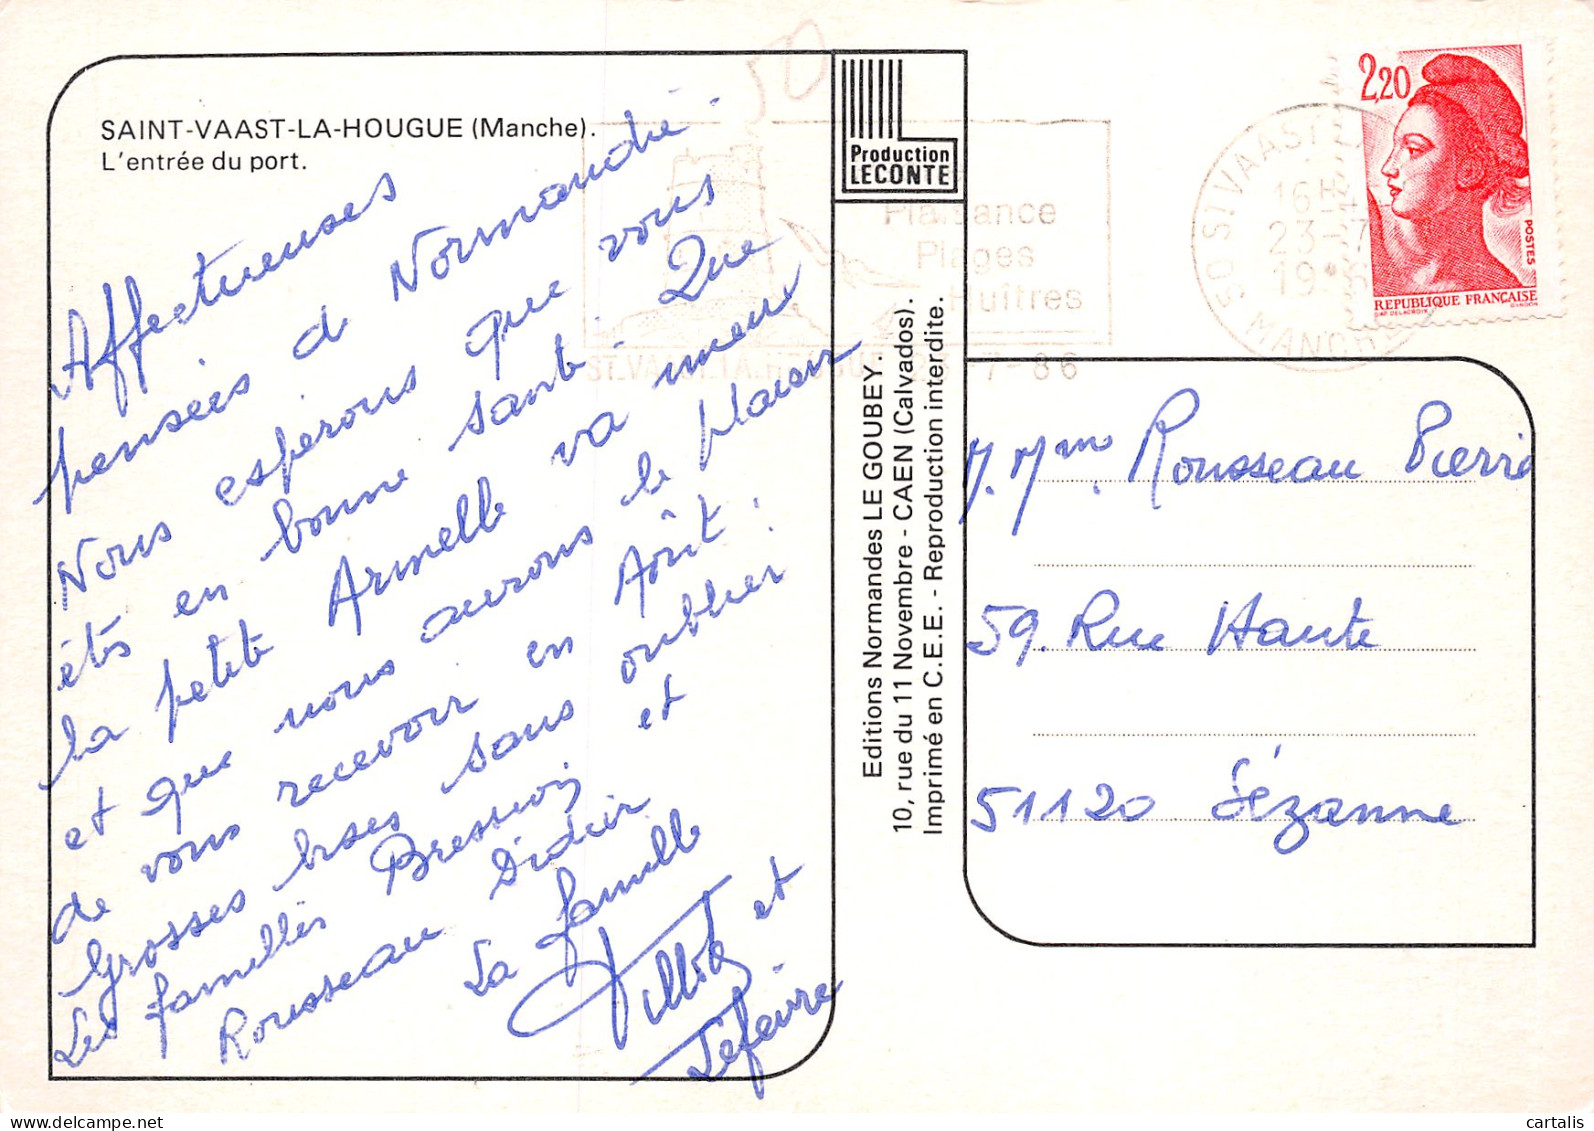 SAINT-VAAST-LA-HOUGUE (Manche).
L'entrée du port.
Affectueuses
pensées de Normandie.
Nous espérons que vous
êtes en bonne santé. Que
la petite Armelle va mieux
et que nous aurons le plaisir
de vous recevoir en Août.
Grosses bises sans oublier
Les familles Bression et
Rousseau Didier
La famille
et
Lefevre
50
Production
LECONTE
Editions Normandes LE GOUBEY.
10, rue du 11 Novembre - CAEN (Calvados).
Imprimé en C.E.E. - Reproduction interdite.
Plaisance
Plages
Huîtres
ST.VAAST.LA.HOUGUE 23-7-86
50 ST VAAST
16H
23-7
19 6
MANCHE
2,20
POSTES
REPUBLIQUE FRANÇAISE
D'AP. DELACROIX
GANDON
M. Mme. Rousseau Pierre
59. Rue Haute
51120 Sézanne
delcampe.net
cartalis